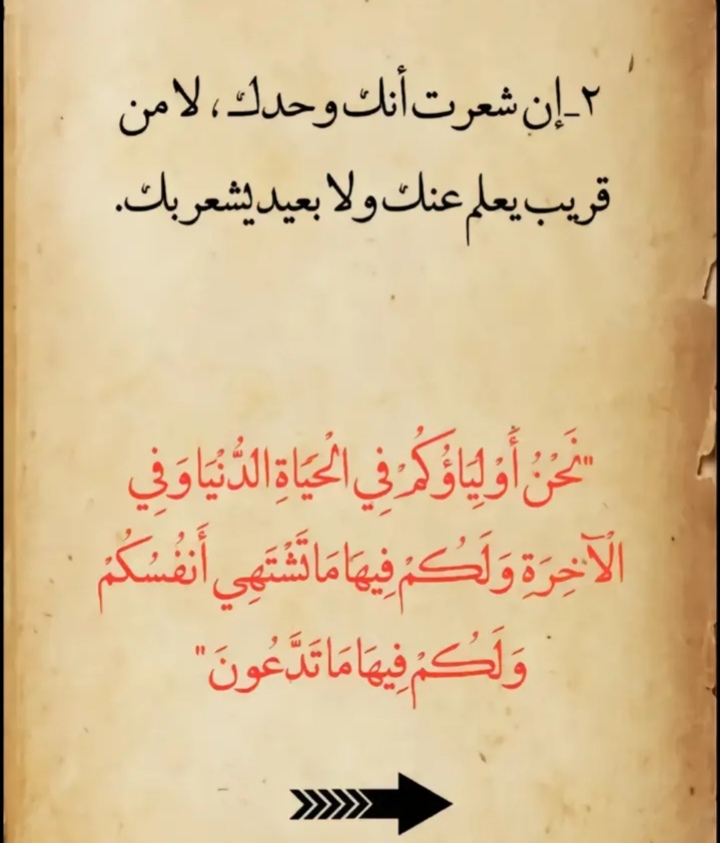 ٢_إن شعرت أنك وحدك ، لا من
قريب يعلم عنك ولا بعيد يشعر بك.
"نَحْنُ أَوْلِيَاؤُكُمْ فِي الْحَيَاةِ الدُّنْيَا وَفِي
الْآخِرَةِ وَلَكُمْ فِيهَا مَا تَشْتَهِي أَنفُسُكُمْ
وَلَكُمْ فِيهَا مَا تَدَّعُونَ"